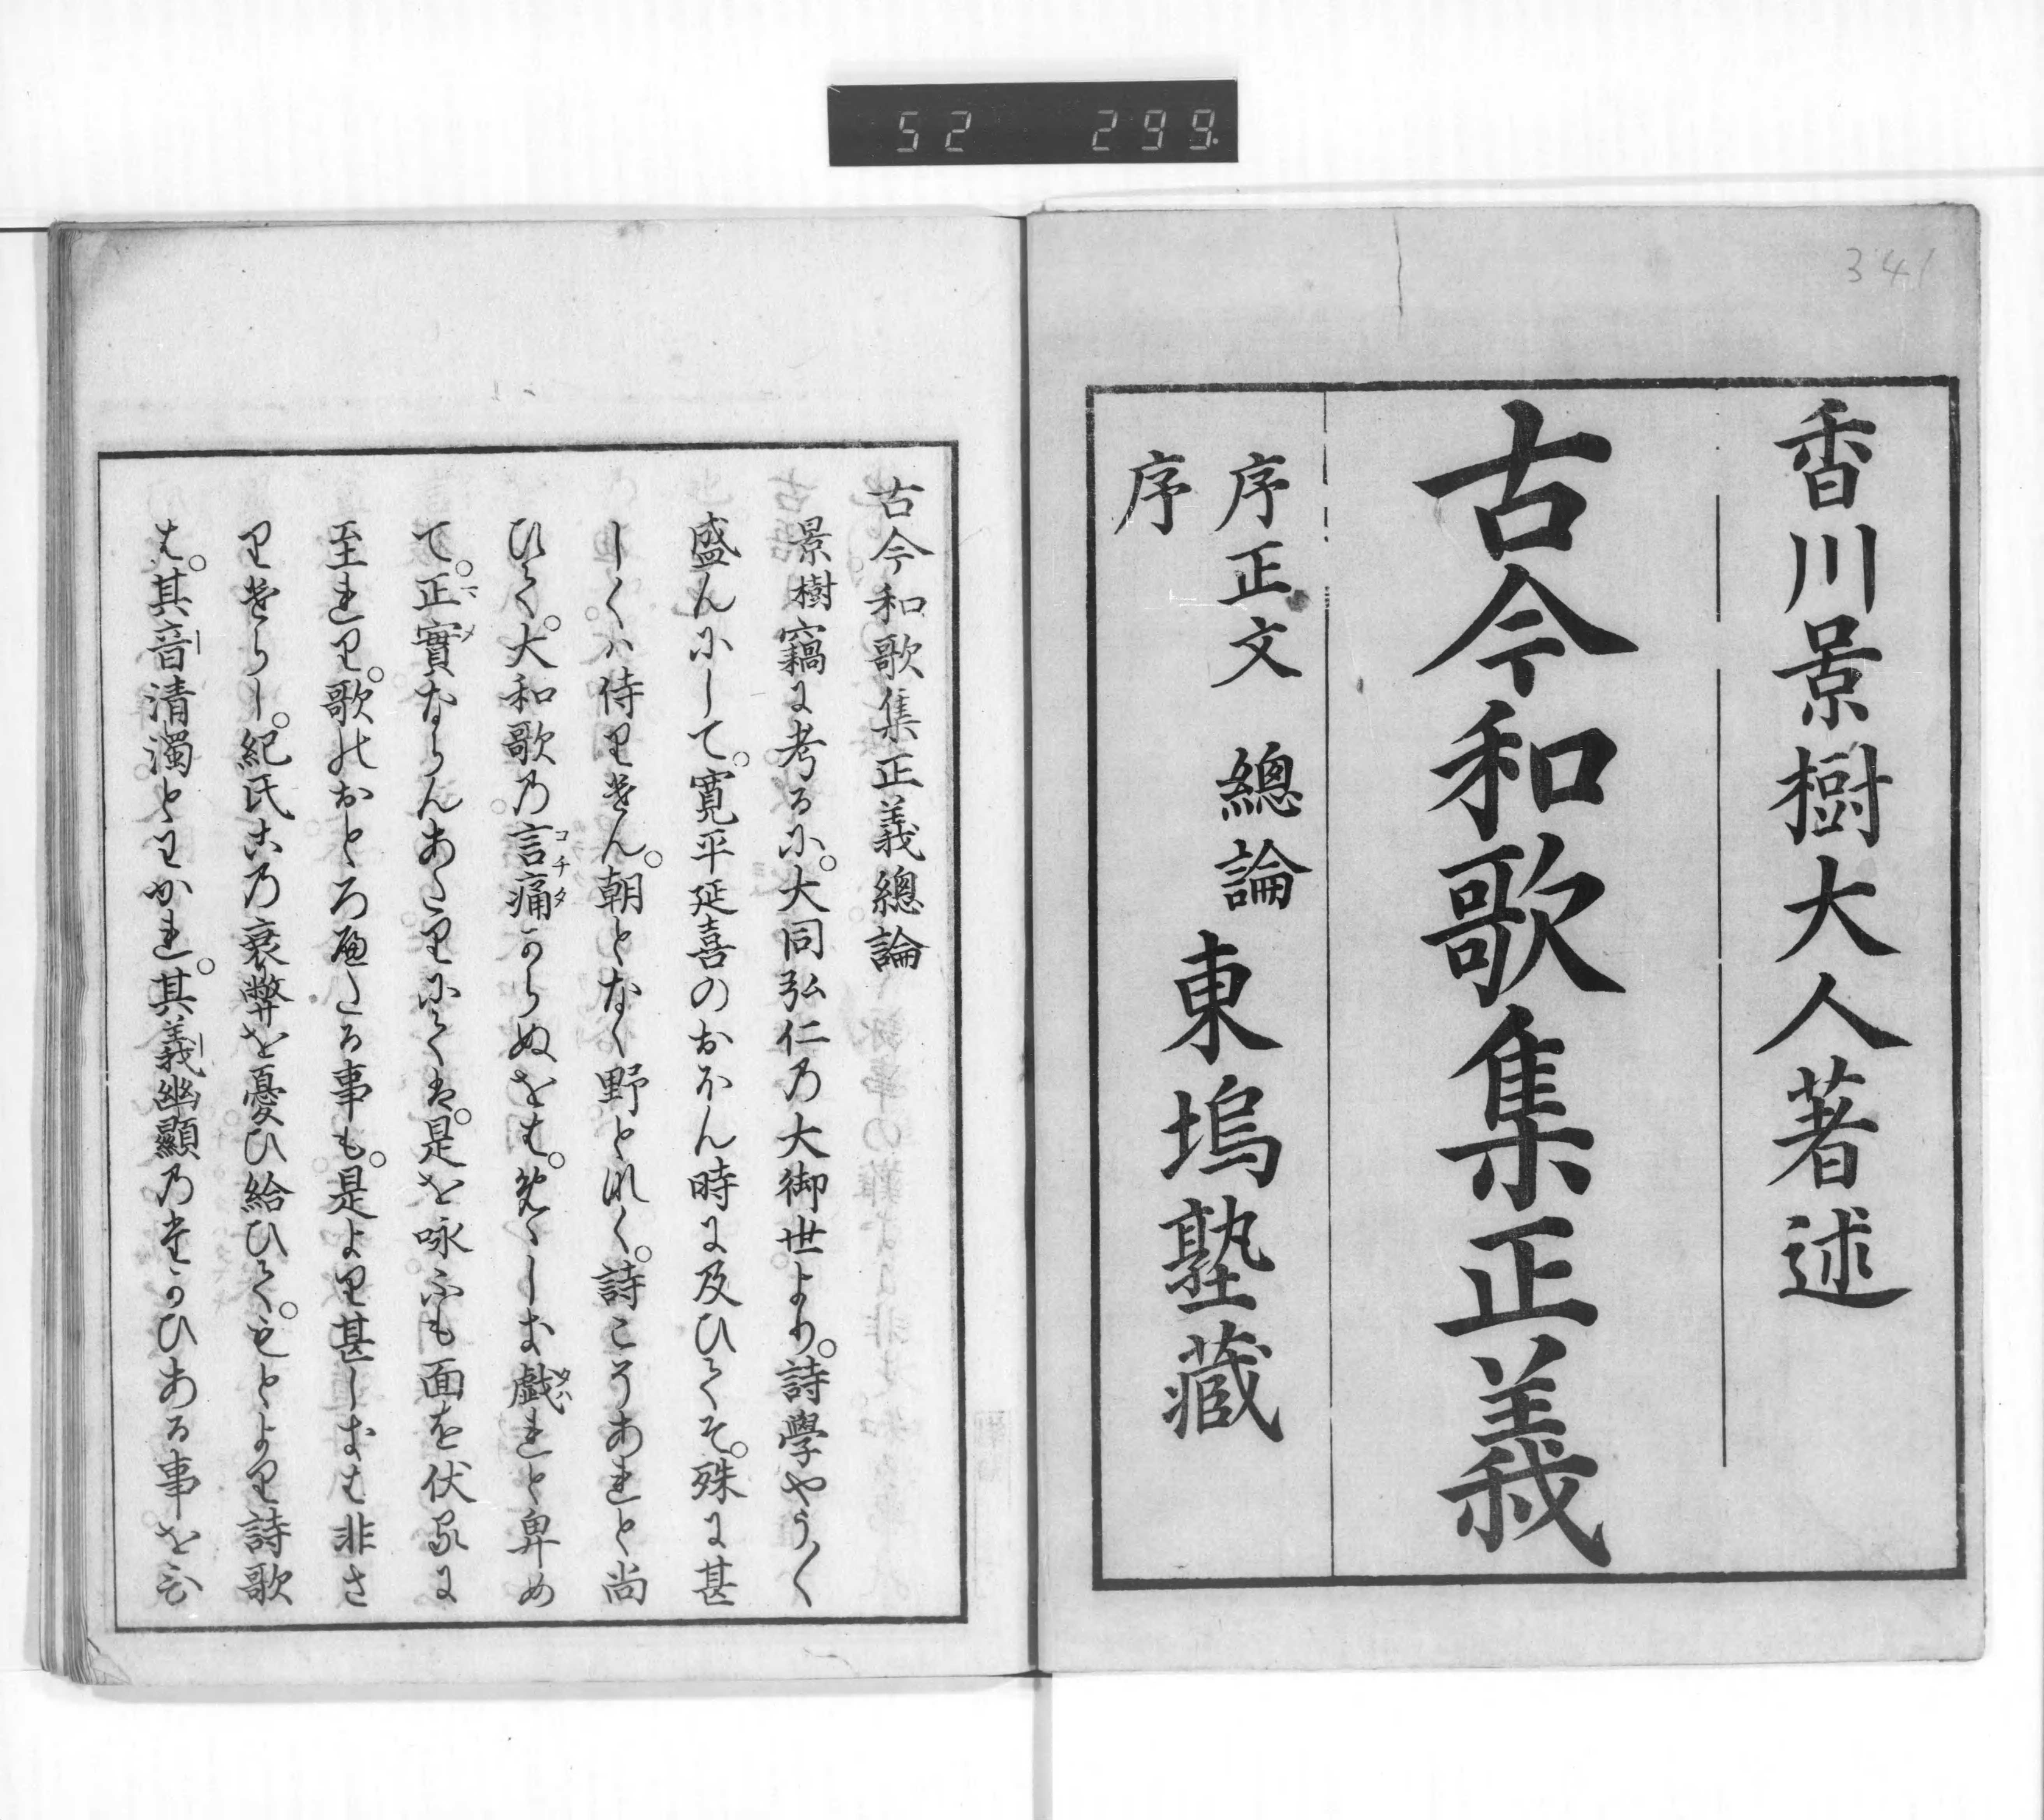 52 299.
341
香川景樹大人著述
古今和歌集正義
序正文 總論
序
東塢塾藏
古今和歌集正義總論
景樹竊に考るに。大同弘仁乃大御世より。詩學やう〳〵
盛んにして。寛平延喜のおほん時に及ひてそ。殊に甚
しくハ侍りけん。朝となく野となく。詩こそあれと尚
ひて。大和歌乃言痛コチタからぬをは。はしめ戯れと卑め
て。正實マメならんあたりにては。是を咏ふも面を伏るに
至れり。歌のおとろへたる事も。是より甚しきは非さ
りけらし。紀氏此乃衰弊を憂ひ給ひて。もとより詩歌
は。其音清濁とわかれ。其義幽顯乃たかひある事をも